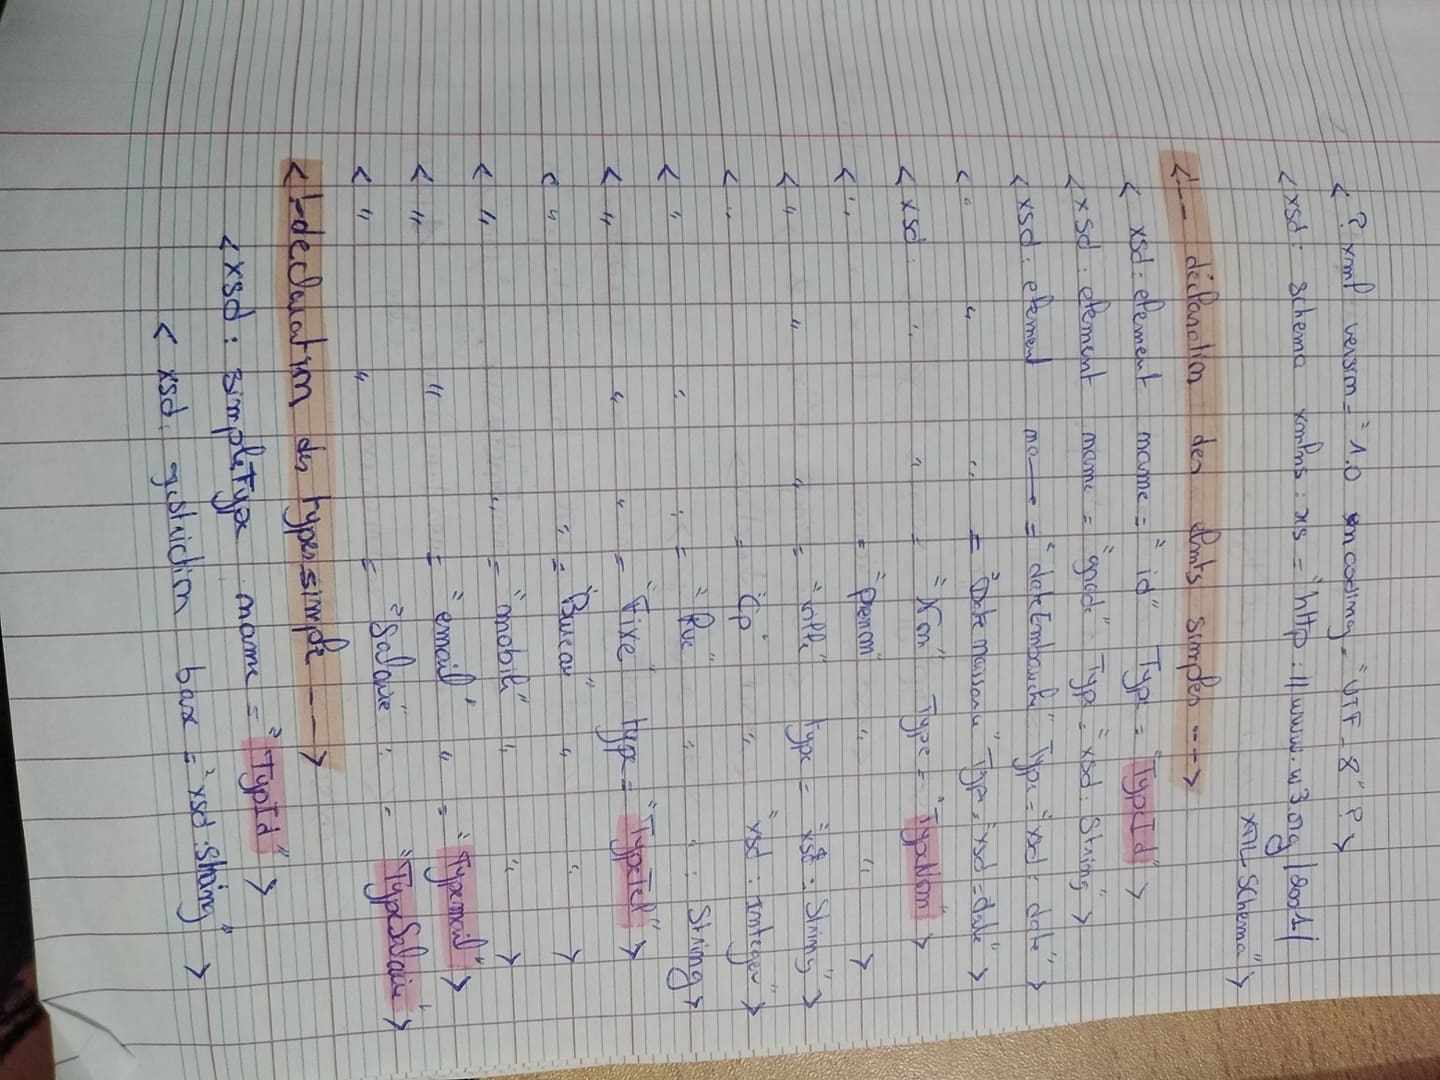 < ? xml version = "1.0 encoding = "UTF-8" ? >
<xsd: schema xmlns : xs = "http://www.w3.org/2001/
XML-Schema" >
<!-- déclaration des elmts simples -->
< xsd : element name = "id" Type = "TypeId" >
<xsd : element name = "grad" Type = "xsd : String" >
<xsd : element na— = "dateEmbauche" Type = "xsd : date" >
< " " " = "Date naissance" Type = "xsd : date" >
< xsd " " = "Nom" Type = "TypeNom" >
< " = "Prenom" " " >
< " " " = "ville" type = "xsd : String" >
< " = "Cp" " "xsd : Integer" >
< " " " = "Rue" " " : String >
< " " " = "Fixe" type = "TypeTel" >
< " " = "Bureau" " " >
< " " = "mobile" " " >
< " " = "email" " = "Typemail" >
< " " = "Salaire" " = "TypeSalaire" >
<!-declaration des types simple --->
<xsd : simpleType name = "TypeId" >
< xsd : restriction base = "xsd : String" >